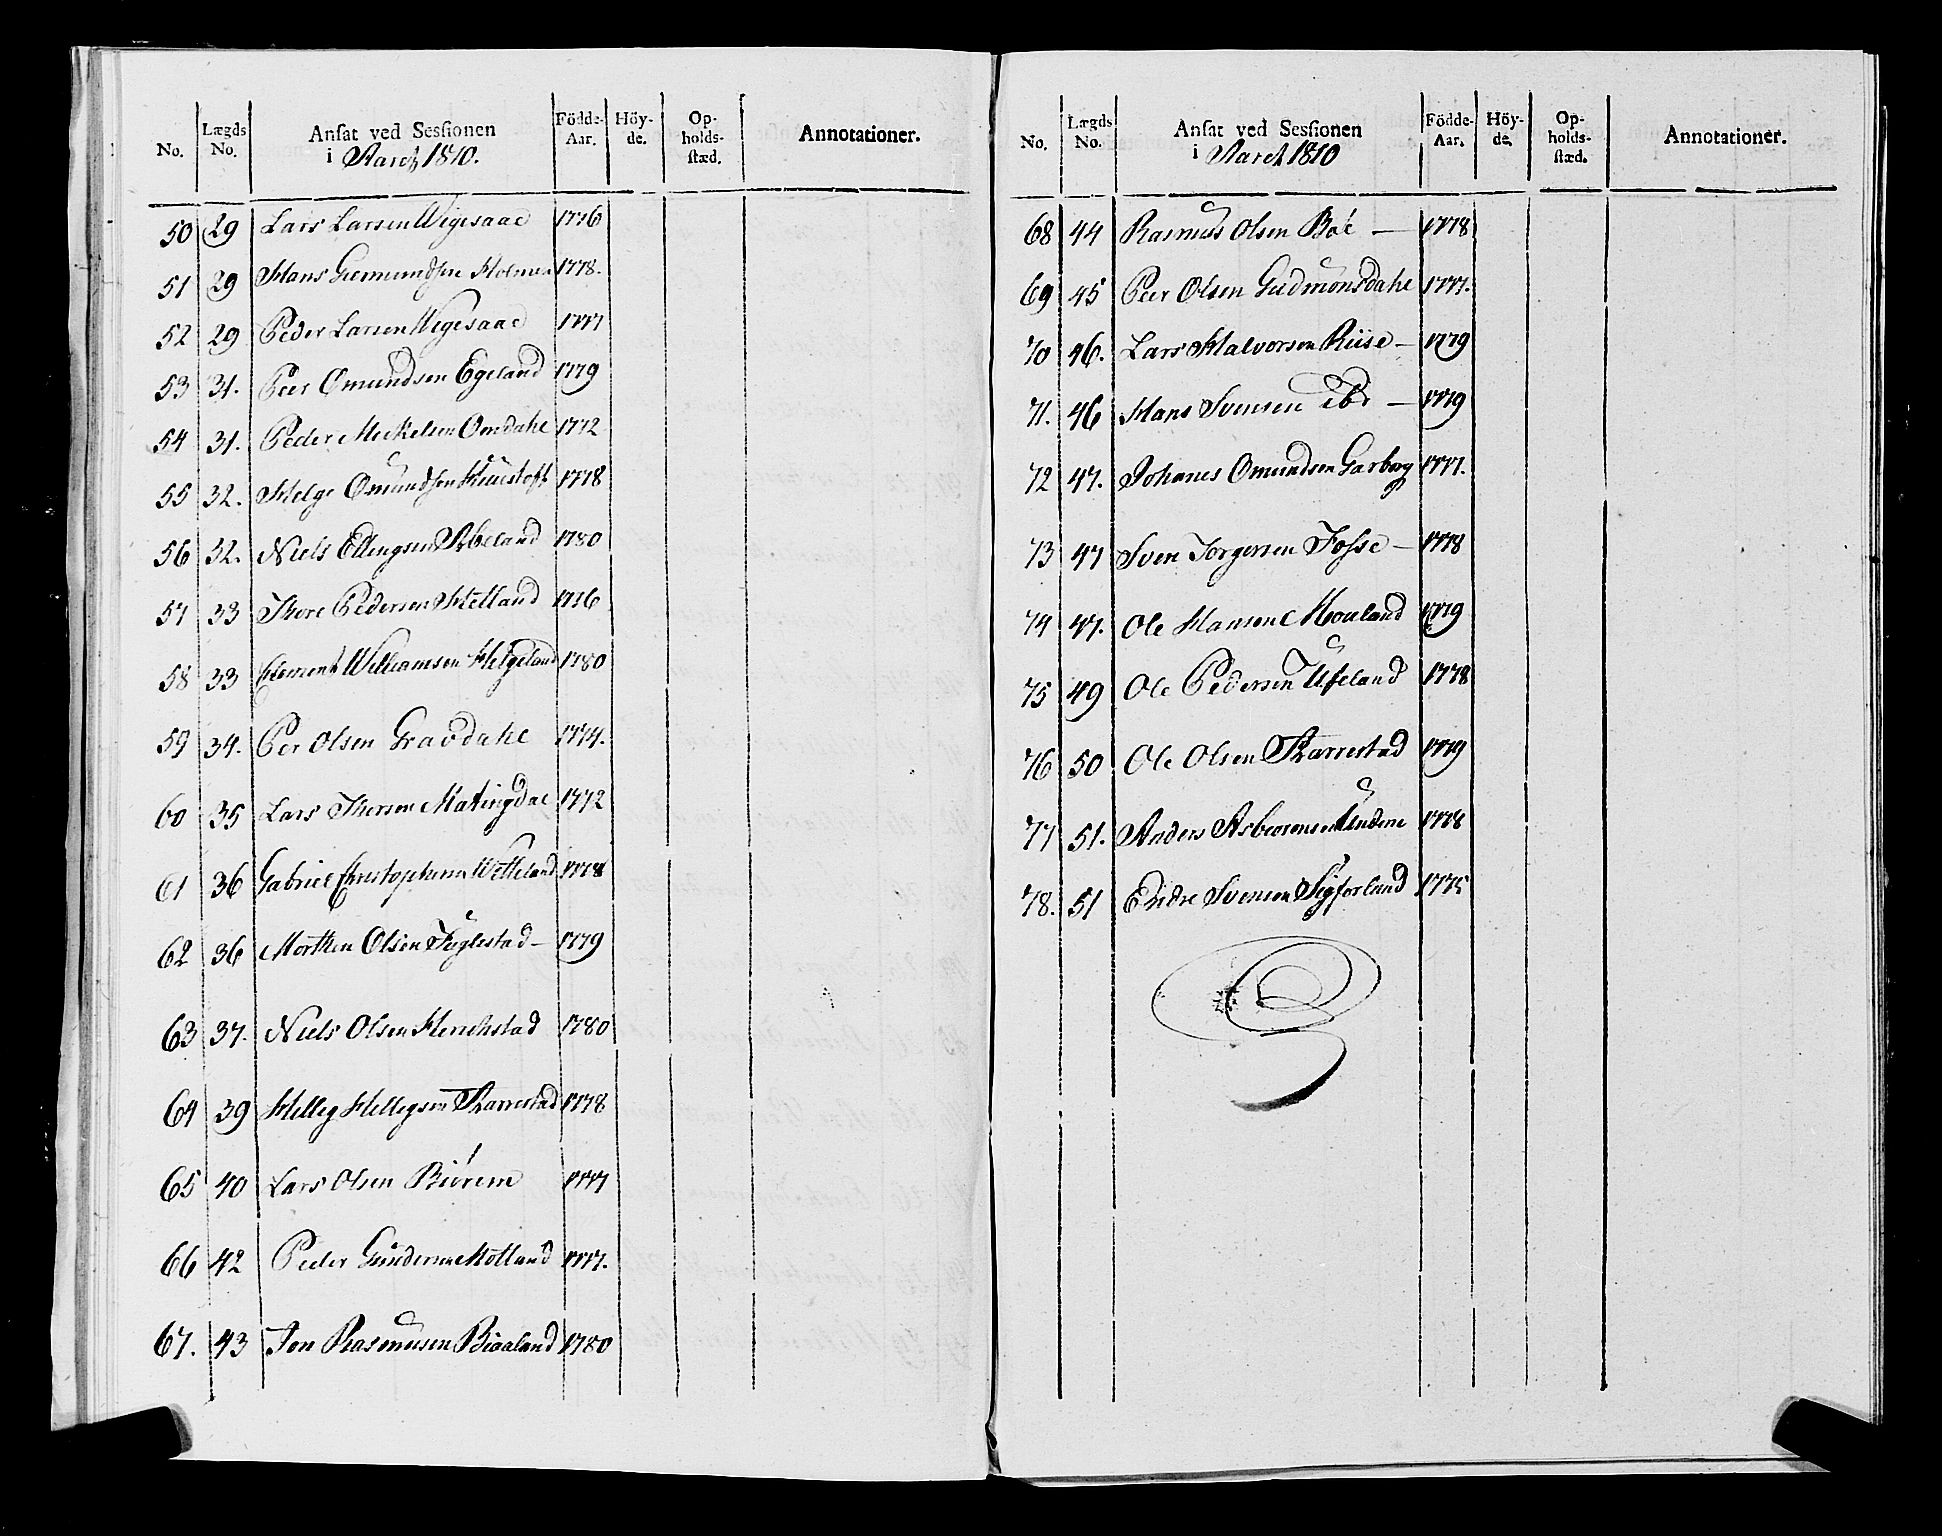 No. Lægds No. Ansat ved Sessionen i Aaret 1810. Födde-Aar. Höy-de. Op-holds-stæd. Annotationer.
50 29 Lars Larsen Wigesaae 1776
51 29 Hans Giermundsen Holmen 1778.
52 29 Peder Larsen Wigesaae 1777
53 31. Peer Omundsen Egeland 1779
54 31. Peder Mickelsen Omdahl 1772
55 32. Helge Omundsen 1778
56 32. Niels Ellingsen Abeland 1780
57 33 Thore Pedersen Helland 1776
58 33 Clement Williamsen Helgeland 1780
59 34. Per Olsen Gravdahl 1774.
60 35 Lars Thorsen Matingdal 1772
61 36 Gabriel Christophersen Wetteland 1778
62 36 Morthen Olsen Fuglestad – 1779
63 37. Niels Olsen Henchstad 1780
64 39 Helleg Hellegsen Skarrestad 1778
65 40 Lars Olsen Birrem 1777
66 42 Peder Gundersen Motland 1777.
67. 43 Jon Rasmusen Bioaland 1780
No. Lægds No. Ansat ved Sessionen i Aaret 1810 Födde-Aar. Höy-de. Op-holds-stæd. Annotationer.
68 44 Rasmus Olsen Bøe — 1778
69 45 Peer Olsen Gudmonsdahl 1777.
70 46. Lars Halvorsen Riise – 1779
71. 46 Hans Svensen ibd — 1779
72 47. Johanes Omundsen Garborg 1777.
73 47 Sven Torgersen Fosse – 1778
74 47. Ole Hansen Mouland 1779
75 49 Ole Pedersen Ueland 1778
76 50 Ole Olsen Skarrestad 1779
77 51. Anders Asbeornsen Undem 1778
78. 51 Endre Svensen Sigforland 1775